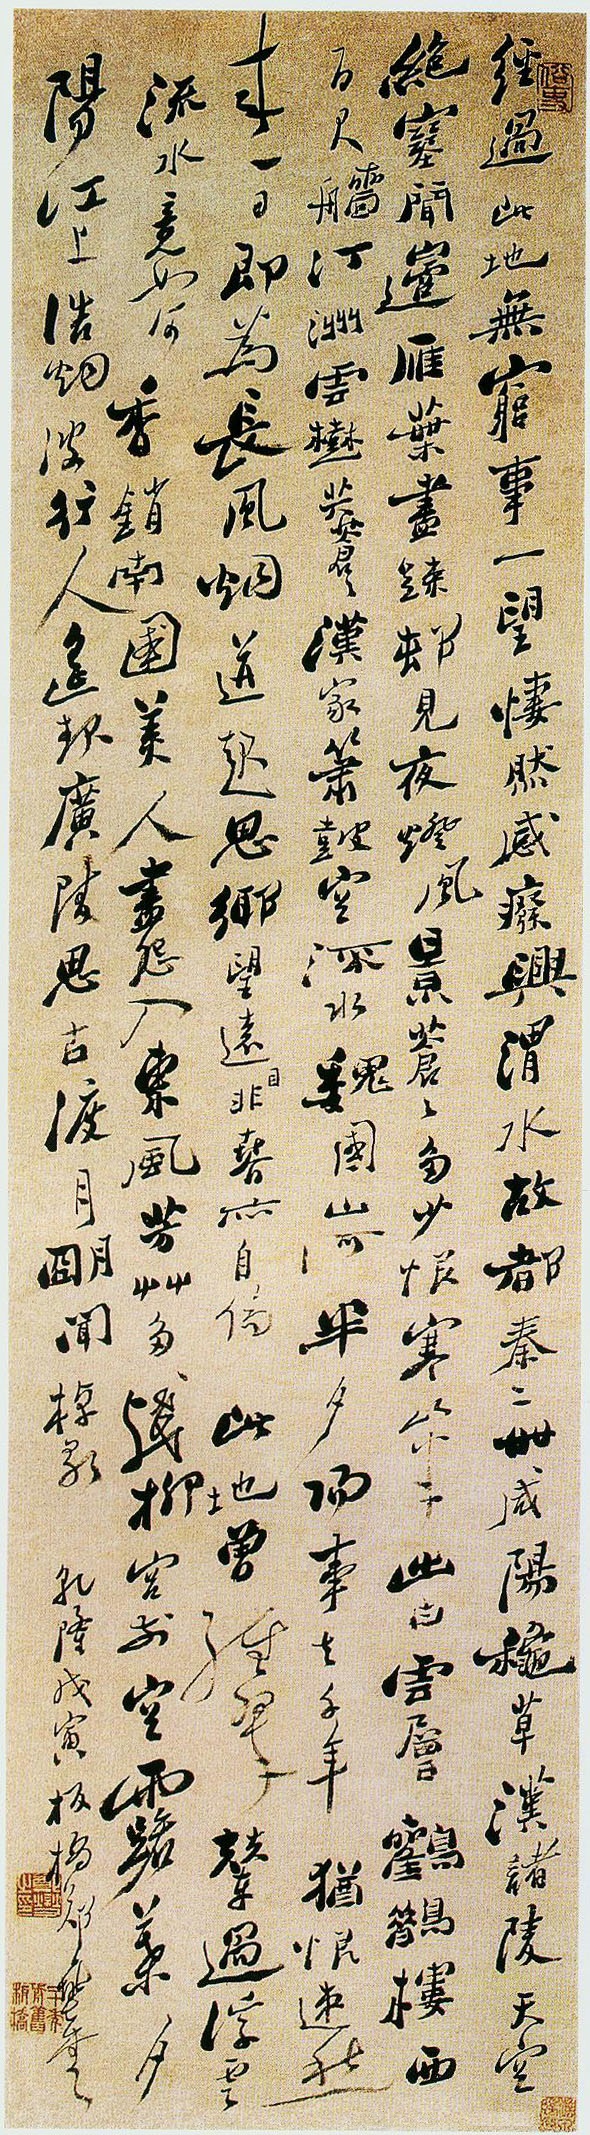 經過此地無窮事一望悽然感癈興渭水故都秦二世咸陽龝草漢諸陵天空
絕塞聞邊雁葉盡疎邨見夜燈風景蒼〻多少恨寒山半出白雲層鸛鵲樓西
百尺艢汀洲雲樹共蒼〻漢家簫鼓空流水魏國山河半夕陽事去千年猶恨速愁
來一日即為長風烟並起思鄉望遠目非春亦自傷此地曾經翠輦過浮雲
流水竟如何香銷南國美人盡怨入東風芳艸多殘柳宮前空露葉夕
陽江上浩烟波行人遙起廣陵思古渡月朙聞棹歌乾隆戊寅板橋鄭燮書